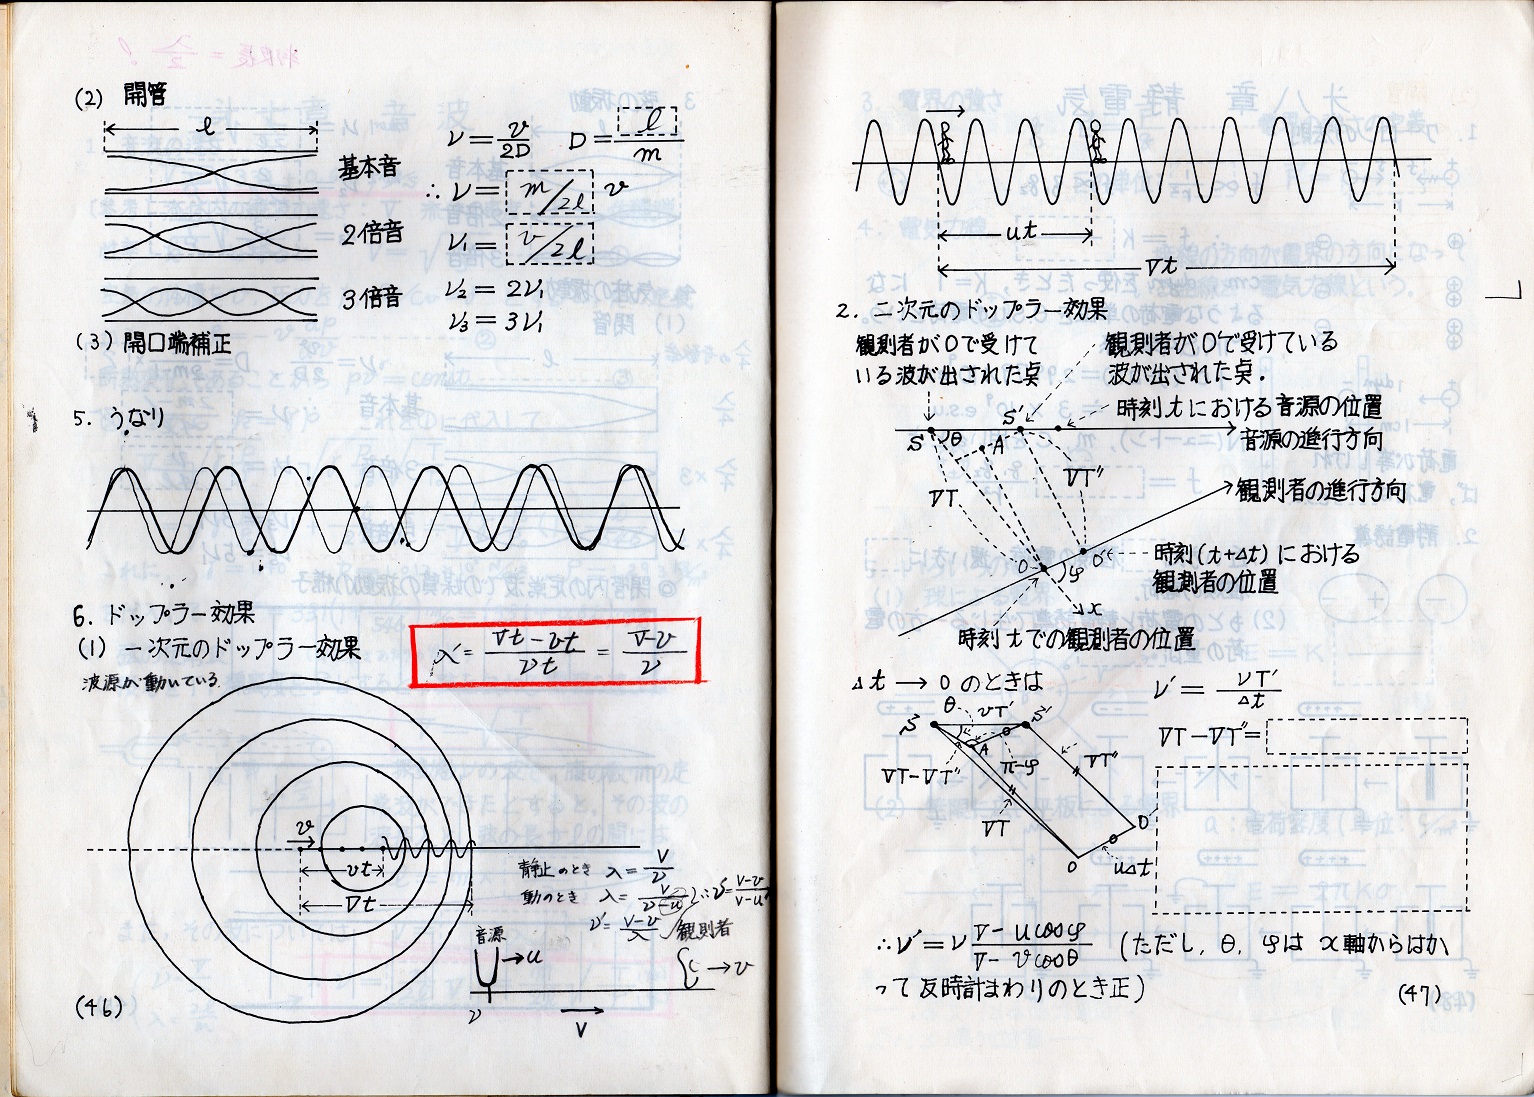 (2) 開管
l
基本音
2倍音
3倍音
ν = v/2D D = l/m
∴ ν = m/2l v
ν₁ = v/2l
ν₂ = 2ν₁
ν₃ = 3ν₁
(3) 開口端補正
5. うなり
6. ドップラー効果
(1) 一次元のドップラー効果
波源が動いている
λ' = (Vt − vt)/νt = (V−v)/ν
v
vt
Vt
静止のとき λ = V/ν
動のとき
音源
→u
観測者
→v
ν
V
(46)
ut
Vt
2. 二次元のドップラー効果
観測者がOで受けて
いる波が出された点
観測者がO'で受けている
波が出された点.
時刻tにおける音源の位置
音源の進行方向
S θ A S'
VT VT''
観測者の進行方向
O φ O'
時刻(t+Δt)における
観測者の位置
x
時刻tでの観測者の位置
Δt → 0 のときは
ν' = νT'/Δt
VT − VT'' =
S θ vT' S'
A
VT−VT'' π−φ VT''
VT
O uΔt
∴ν' = ν (V − u cosφ)/(V − v cosθ) (ただし, θ, φは x軸からはか
って反時計まわりのとき正)
(47)